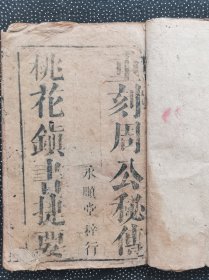 重刻周公秘傳
桃花鎮書捷要
永順堂梓行